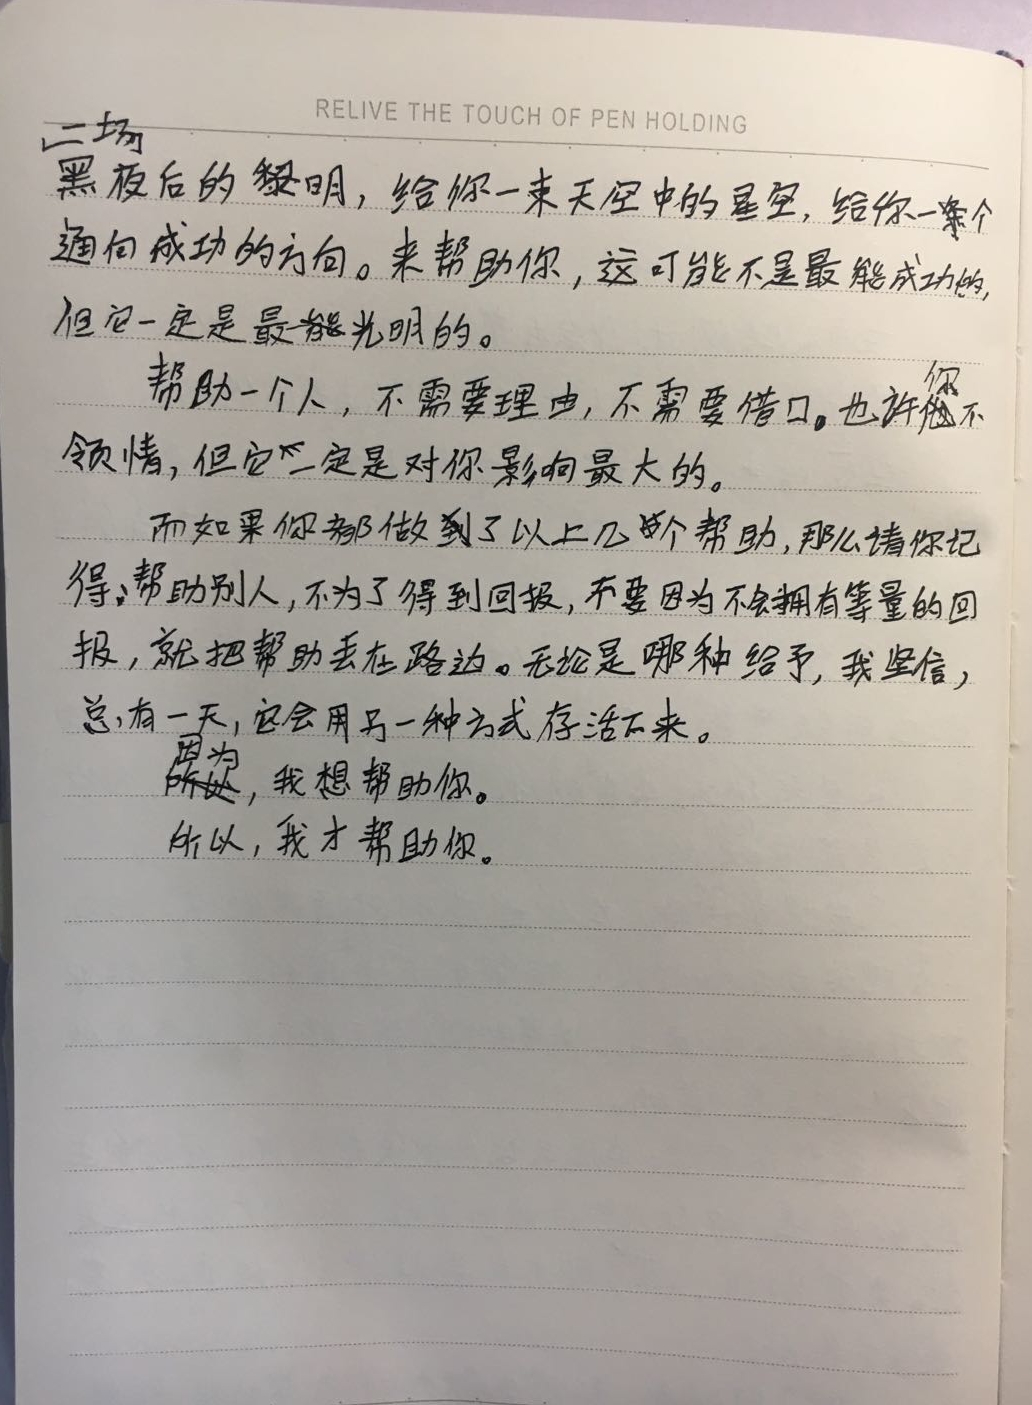 RELIVE THE TOUCH OF PEN HOLDING
二场
黑夜后的黎明，给你一束天空中的星空，给你一个
通向成功的方向。来帮助你，这可能不是最能成功的，
但它一定是最光明的。
你
帮助一个人，不需要理由，不需要借口。也许不
领情，但它一定是对你影响最大的。
而如果你都做到了以上几个帮助，那么请你记
得：帮助别人，不为了得到回报，不要因为不会拥有等量的回
报，就把帮助丢在路边。无论是哪种给予，我坚信，
总有一天，它会用另一种方式存活下来。
因为
所以，我想帮助你。
所以，我才帮助你。